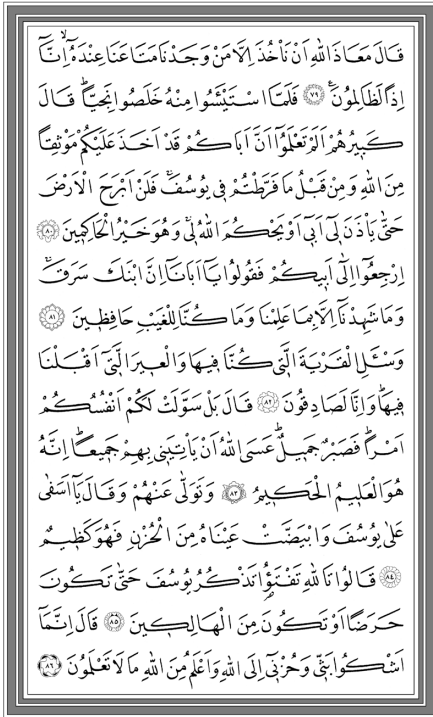 قَالَ مَعَاذَ اللّٰهِ اَنْ نَأْخُذَ اِلَّا مَنْ وَجَدْنَا مَتَاعَنَا عِنْدَهُٓ ۙ اِنَّٓا
اِذًا لَظَالِمُونَ ۟ ﴿٧٩﴾ فَلَمَّا اسْتَيْـَٔسُوا مِنْهُ خَلَصُوا نَجِيًّاۜ قَالَ
كَبِيرُهُمْ اَلَمْ تَعْلَمُٓوا اَنَّ اَبَاكُمْ قَدْ اَخَذَ عَلَيْكُمْ مَوْثِقًا
مِنَ اللّٰهِ وَمِنْ قَبْلُ مَا فَرَّطْتُمْ فِى يُوسُفَۚ فَلَنْ اَبْرَحَ الْاَرْضَ
حَتّٰى يَأْذَنَ لِٓى اَبِٓى اَوْ يَحْكُمَ اللّٰهُ لِىۚ وَهُوَ خَيْرُ الْحَاكِمِينَ ﴿٨٠﴾
اِرْجِعُٓوا اِلٰٓى اَبِيكُمْ فَقُولُوا يَٓا اَبَانَٓا اِنَّ ابْنَكَ سَرَقَۚ
وَمَا شَهِدْنَٓا اِلَّا بِمَا عَلِمْنَا وَمَا كُنَّا لِلْغَيْبِ حَافِظِينَ ﴿٨١﴾
وَسْـَٔلِ الْقَرْيَةَ الَّتِى كُنَّا فِيهَا وَالْعِيرَ الَّتِٓى اَقْبَلْنَا
فِيهَاۜ وَاِنَّا لَصَادِقُونَ ﴿٨٢﴾ قَالَ بَلْ سَوَّلَتْ لَكُمْ اَنْفُسُكُمْ
اَمْرًاۜ فَصَبْرٌ جَمِيلٌۜ عَسَى اللّٰهُ اَنْ يَأْتِيَنِى بِهِمْ جَمِيعًاۜ اِنَّهُ
هُوَ الْعَلِيمُ الْحَكِيمُ ﴿٨٣﴾ وَتَوَلّٰى عَنْهُمْ وَقَالَ يَٓا اَسَفٰى
عَلٰى يُوسُفَ وَابْيَضَّتْ عَيْنَاهُ مِنَ الْحُزْنِ فَهُوَ كَظِيمٌ
﴿٨٤﴾ قَالُوا تَاللّٰهِ تَفْتَؤُ۬ا تَذْكُرُ يُوسُفَ حَتّٰى تَكُونَ
حَرَضًا اَوْ تَكُونَ مِنَ الْهَالِكِينَ ﴿٨٥﴾ قَالَ اِنَّمَٓا
اَشْكُوا بَثّٖى وَحُزْنِٓى اِلَى اللّٰهِ وَاَعْلَمُ مِنَ اللّٰهِ مَا لَا تَعْلَمُونَ ﴿٨٦﴾